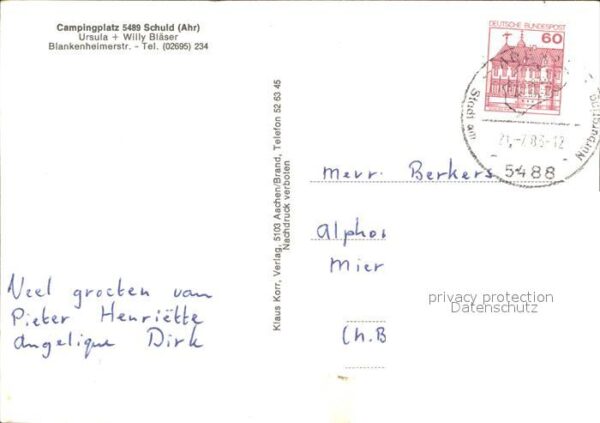 Campingplatz 5489 Schuld (Ahr)
Ursula + Willy Bläser
Blankenheimerstr. - Tel. (02695) 234
DEUTSCHE BUNDESPOST
60
Stadt am
Nürburgring
21.-7.83-12
5488
Klaus Korr, Verlag, 5103 Aachen/Brand, Telefon 52 63 45
Nachdruck verboten
Mevr. Berkers
Alphos
Mier
Ch.B
privacy protection
Datenschutz
Veel groeten van
Pieter Henriëtte
Angelique Dirk